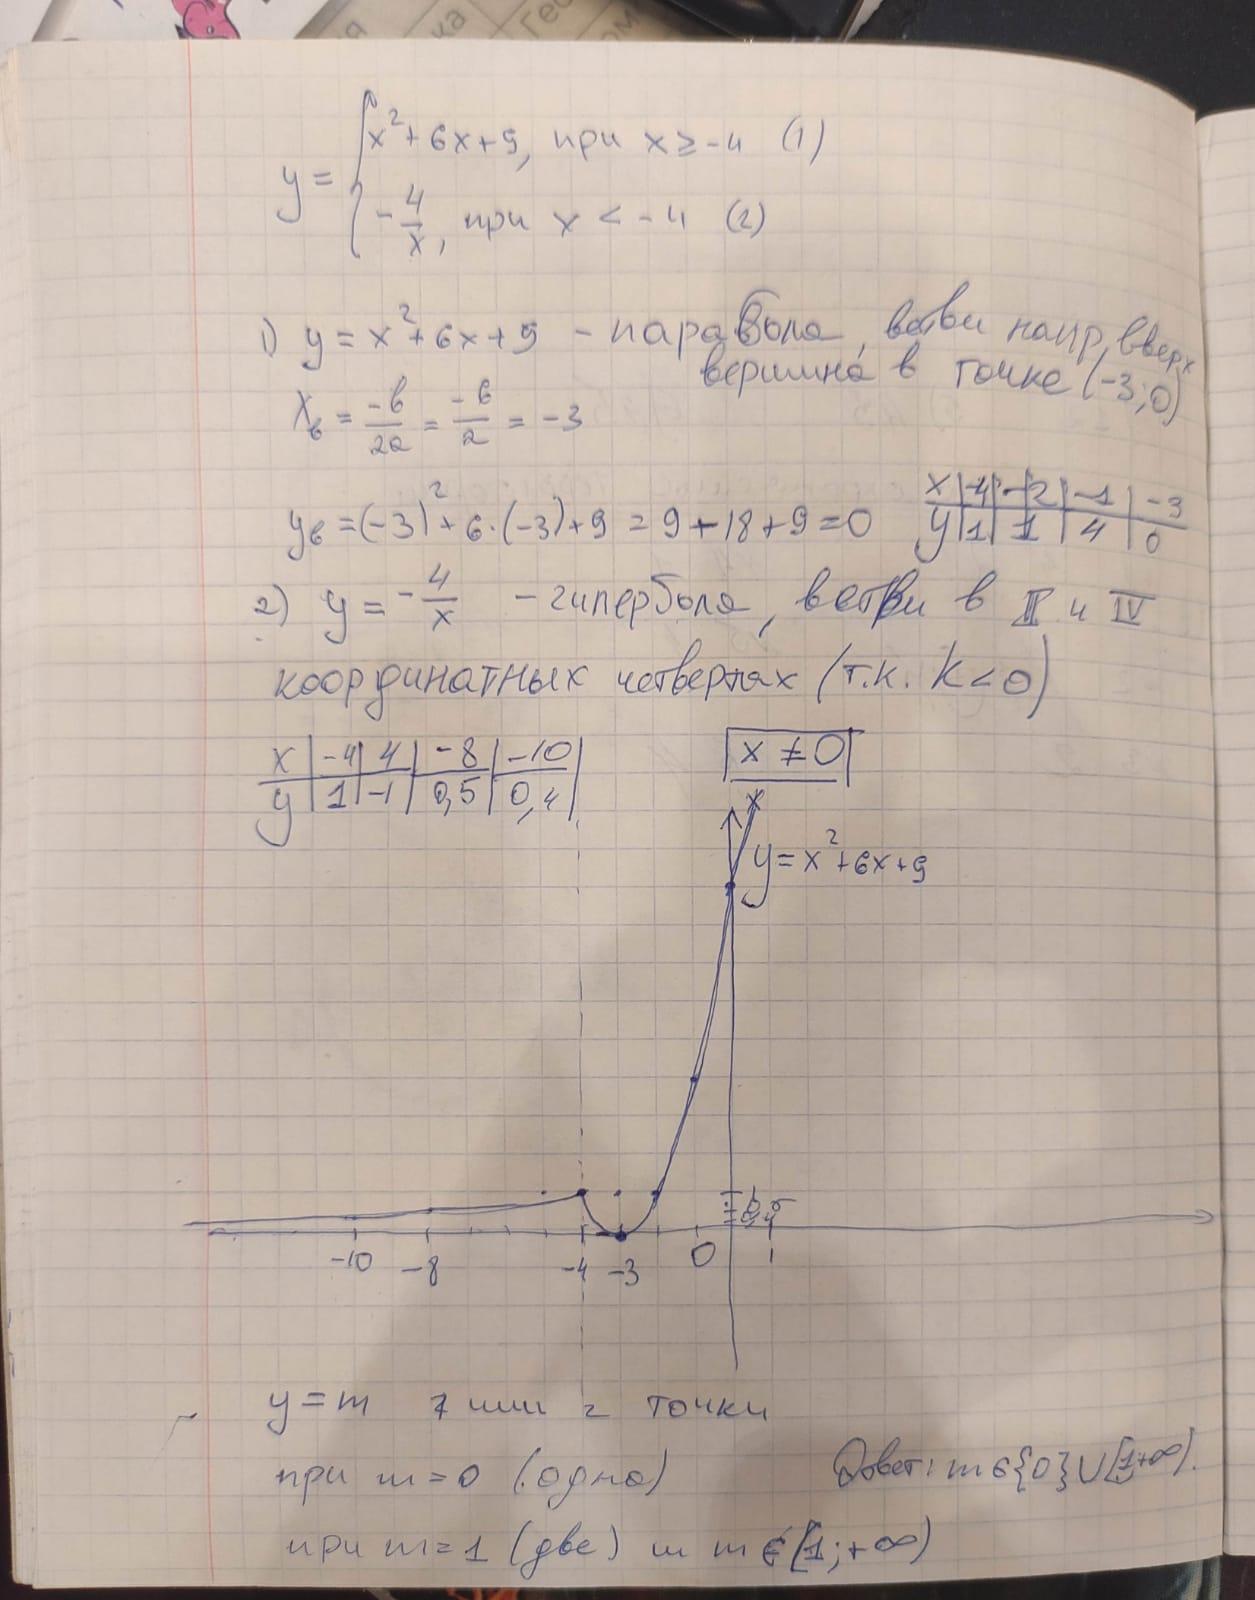 y = { x² + 6x + 9, при x ≥ -4 (1)
-4/x, при x < -4 (2)
1) y = x² + 6x + 9 - парабола, ветви напр, вверх
вершина в точке (-3; 0)
xв = -b/2a = -6/2 = -3
yв = (-3)² + 6·(-3) + 9 = 9 - 18 + 9 = 0
x | -4 | -2 | -1 | -3
y | 1 | 1 | 4 | 0
2) y = -4/x - гипербола, ветви в II и IV
координатных четвертях (т.к. k < 0)
x | -4 | 4 | -8 | -10
y | 1 | -1 | 0,5 | 0,4
x ≠ 0
y = x² + 6x + 9
-10 -8 -4 -3 0 1
y = m 1 или 2 точки
при m = 0 (одна)
при m = 1 (две) и m ∈ [1; +∞)
Ответ: m ∈ {0} ∪ [1; +∞).